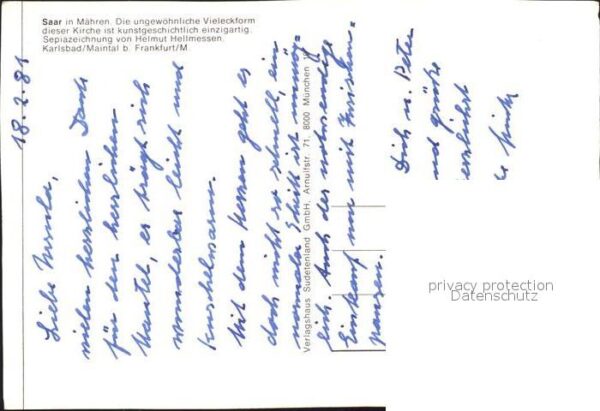 Saar in Mähren. Die ungewöhnliche Vieleckform
dieser Kirche ist kunstgeschichtlich einzigartig.
Sepiazeichnung von Helmut Hellmessen.
Karlsbad/Maintal b. Frankfurt/M
18.2.81
Liebe Ursula,
vielen herzlichen Dank
für den herrlichen
Mantel, es trägt sich
wunderbar leicht und
kuschelwarm.
Mit dem Herzen geht es
doch nicht so schnell, ein
normaler Schritt ist unmög-
lich. Auch der notwendige
Einkauf nur mit Zwischen-
pausen.
Dich u. Peter
und grüße
herzlichst
Verlagshaus Sudetenland GmbH, Arnulfstr. 71, 8000 München
privacy protection
Datenschutz